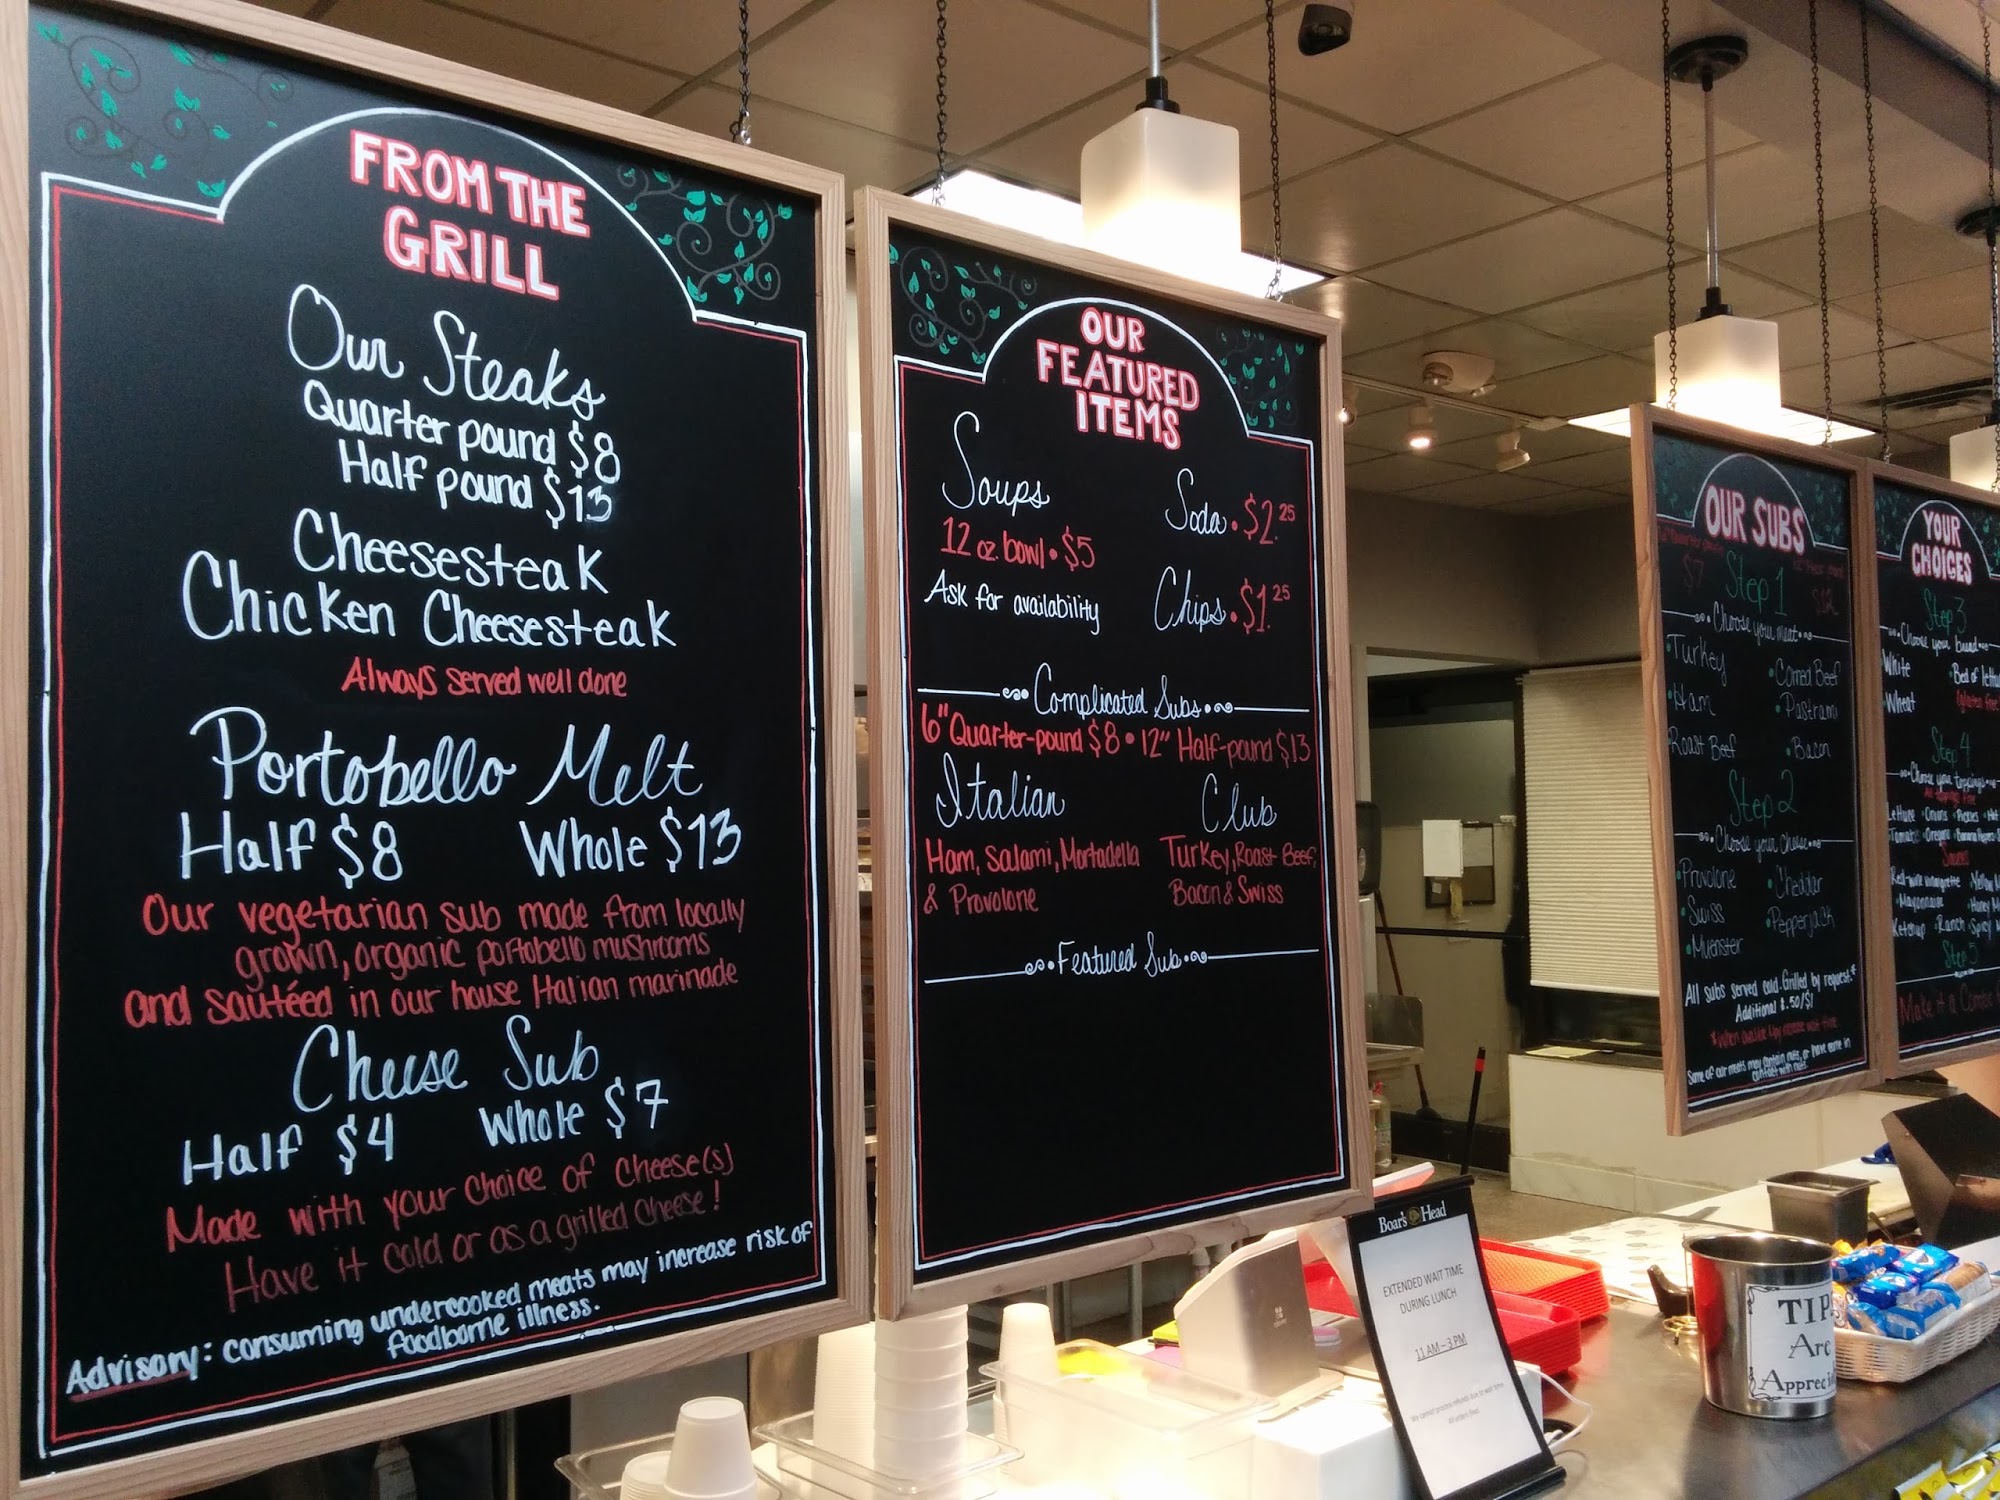 FROM THE
GRILL
Our Steaks
Quarter pound $8
Half pound $13
Cheesesteak
Chicken Cheesesteak
Always served well done
Portobello Melt
Half $8 Whole $13
Our vegetarian sub made from locally
grown, organic portobello mushrooms
and sautéed in our house Italian marinade
Cheese Sub
Half $4 Whole $7
Made with your choice of cheese(s)
Have it cold or as a grilled cheese!
Advisory: consuming undercooked meats may increase risk of
foodborne illness.
OUR
FEATURED
ITEMS
Soups
12 oz. bowl • $5
Ask for availability
Soda • $2.25
Chips • $1.25
Complicated Subs
6" Quarter-pound $8 • 12" Half-pound $13
Italian
Ham, Salami, Mortadella
& Provolone
Club
Turkey, Roast Beef,
Bacon & Swiss
Featured Sub
OUR SUBS
$7 Step 1 $12
Choose your meat
• Turkey • Corned Beef
• Ham • Pastrami
• Roast Beef • Bacon
Step 2
Choose your Cheese
• Provolone • Cheddar
• Swiss • Pepperjack
• Muenster
All subs served cold. Grilled by request.*
Additional $.50/$1
*When available. May increase wait time
Some of our meats may contain nuts, or have come in
contact with nuts.
YOUR
CHOICES
Step 3
Choose your bread
White • Bed of lettu
Wheat (gluten free
Step 4
Choose your toppings
Lettuce • Onions • Pickles • Hot
Tomato • Oregano • Banana Peppers
Sauces
Red-wine vinaigrette • Yellow M
• Mayonnaise • Honey M
Ketchup • Ranch • Spicy
Step 5
Make it a Combo
Boar's Head
EXTENDED WAIT TIME
DURING LUNCH
11 AM – 3 PM
We cannot process refunds due to wait time.
All orders final.
TIPS
Are
Appreci